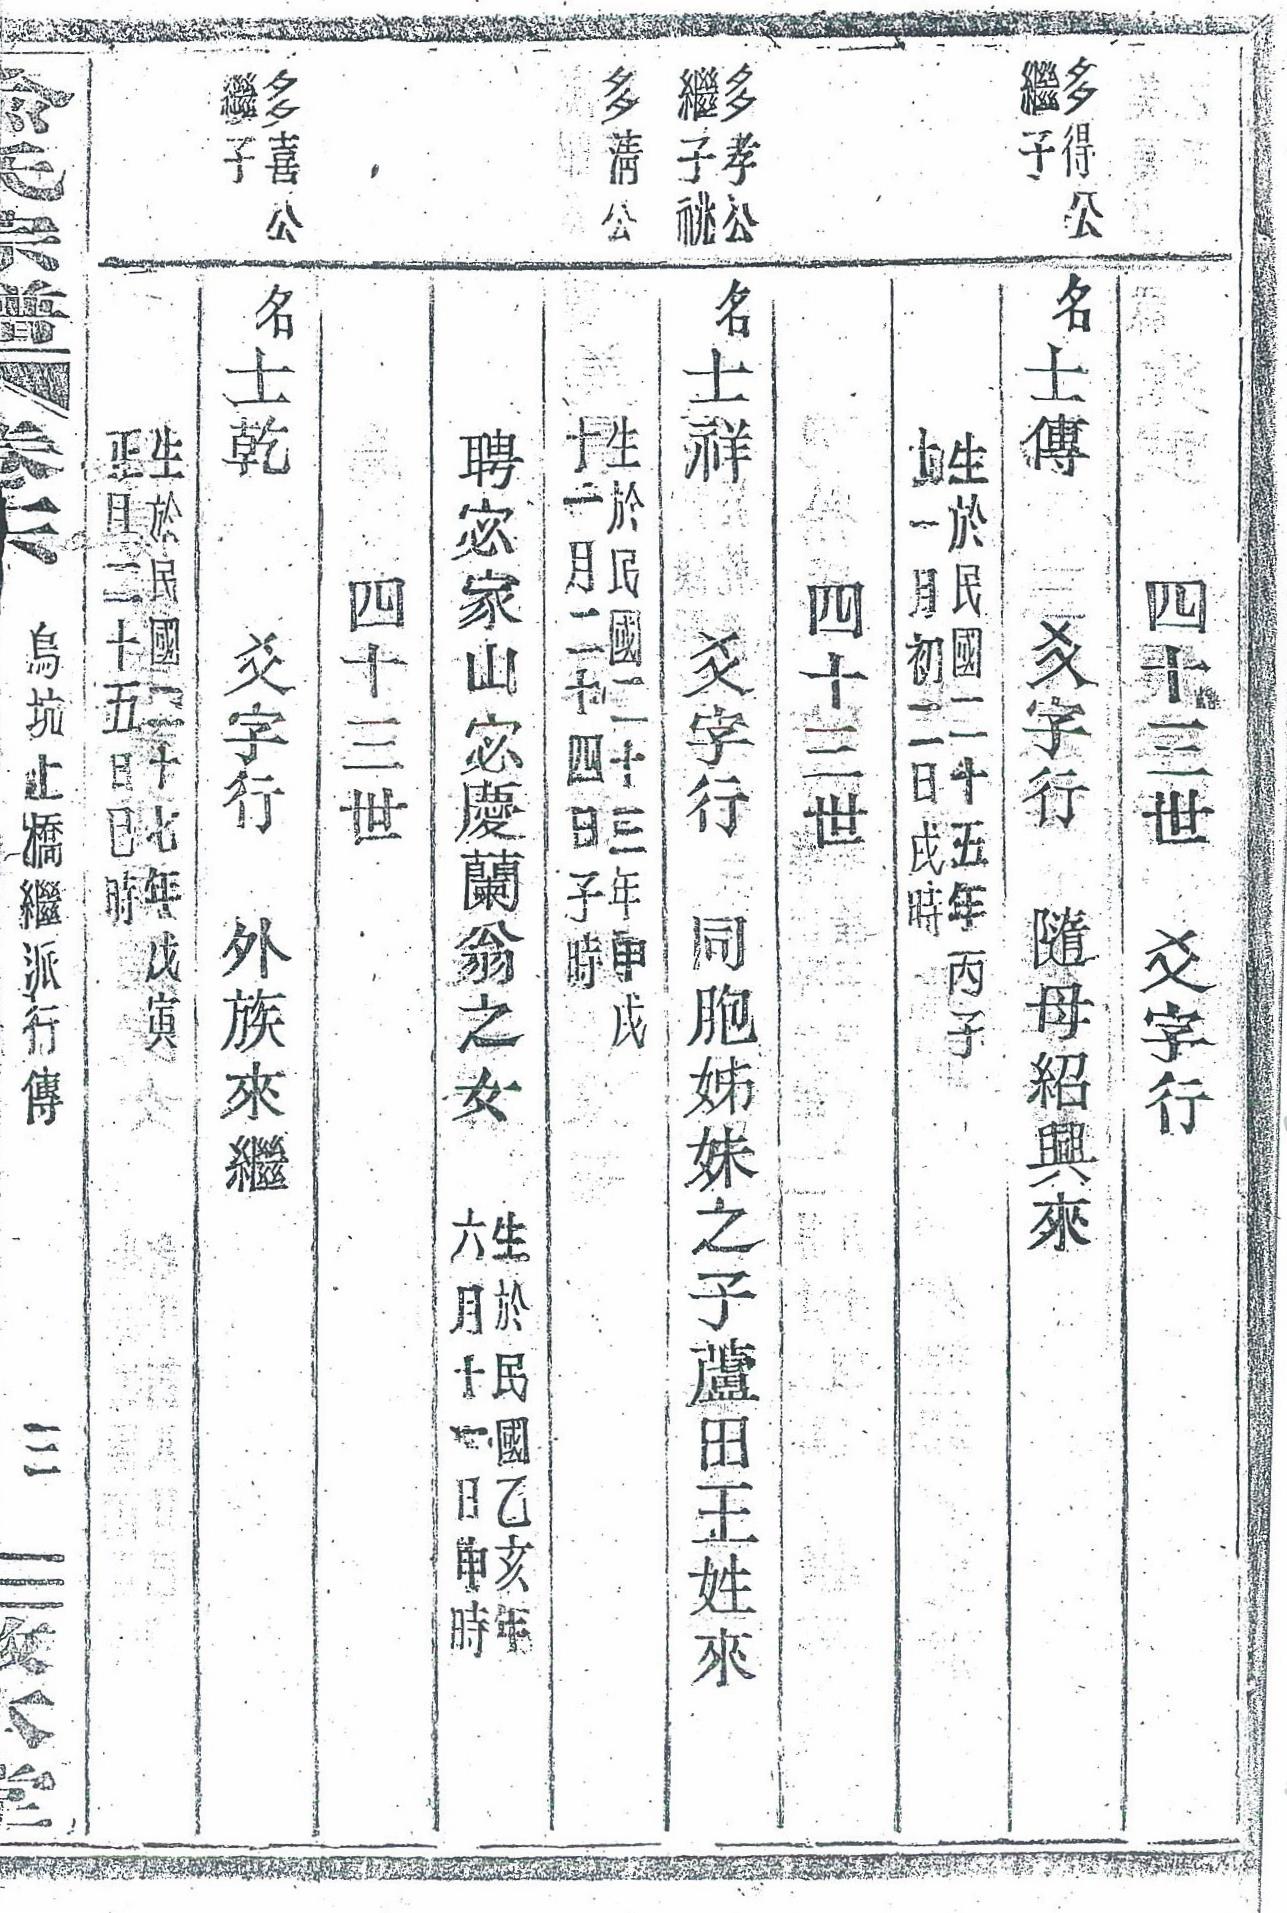 四十三世　爻字行
多得公
繼子
名士傳　爻字行　隨母紹興來
生於民國二十五年丙子
一月初二日戌時
四十三世
多孝公
繼子祧
多清公
名士祥　爻字行　同胞姊妹之子蘆田王姓來
生於民國二十三年甲戌
十一月二十四日子時
聘宓家山宓慶蘭翁之女
生於民國乙亥年
六月十一日申時
四十三世
多喜公
繼子
名士乾　爻字行　外族來繼
生於民國二十七年戊寅
正月二十五日巳時
俞氏宗譜
卷六
烏坑止橋繼派行傳
三
敦久堂